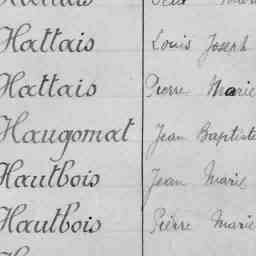 Hattais Louis Joseph
Hattais Pierre Marie
Haugomat Jean Baptiste
Hautbois Jean Marie
Hautbois Pierre Marie